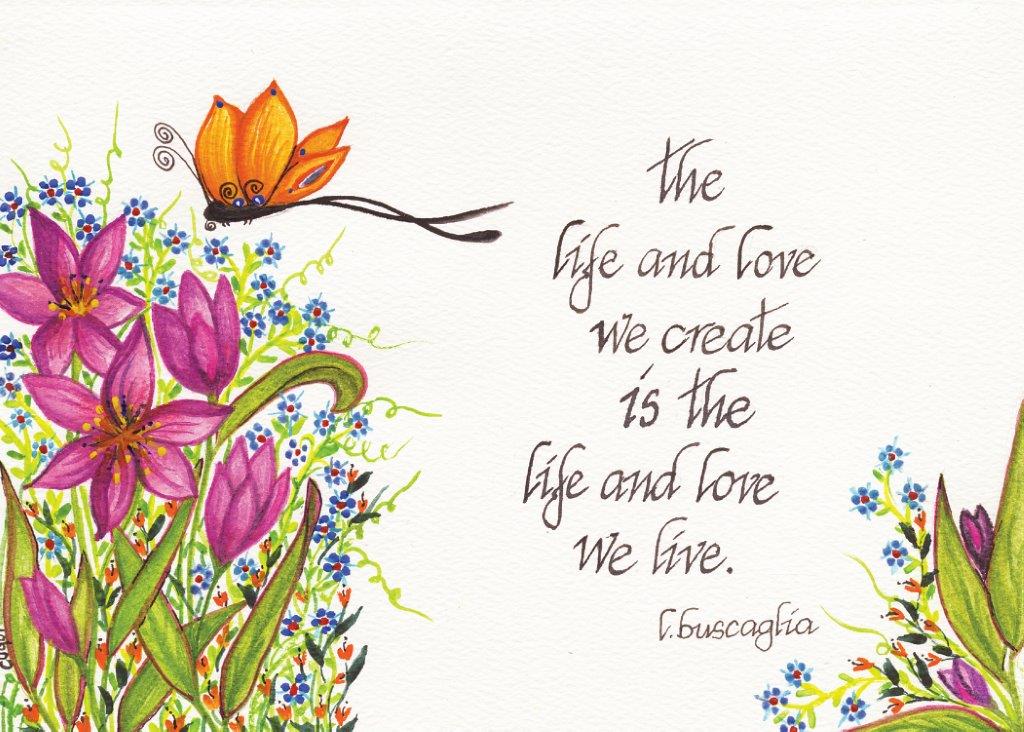 the
life and love
we create
is the
life and love
we live.
l.buscaglia